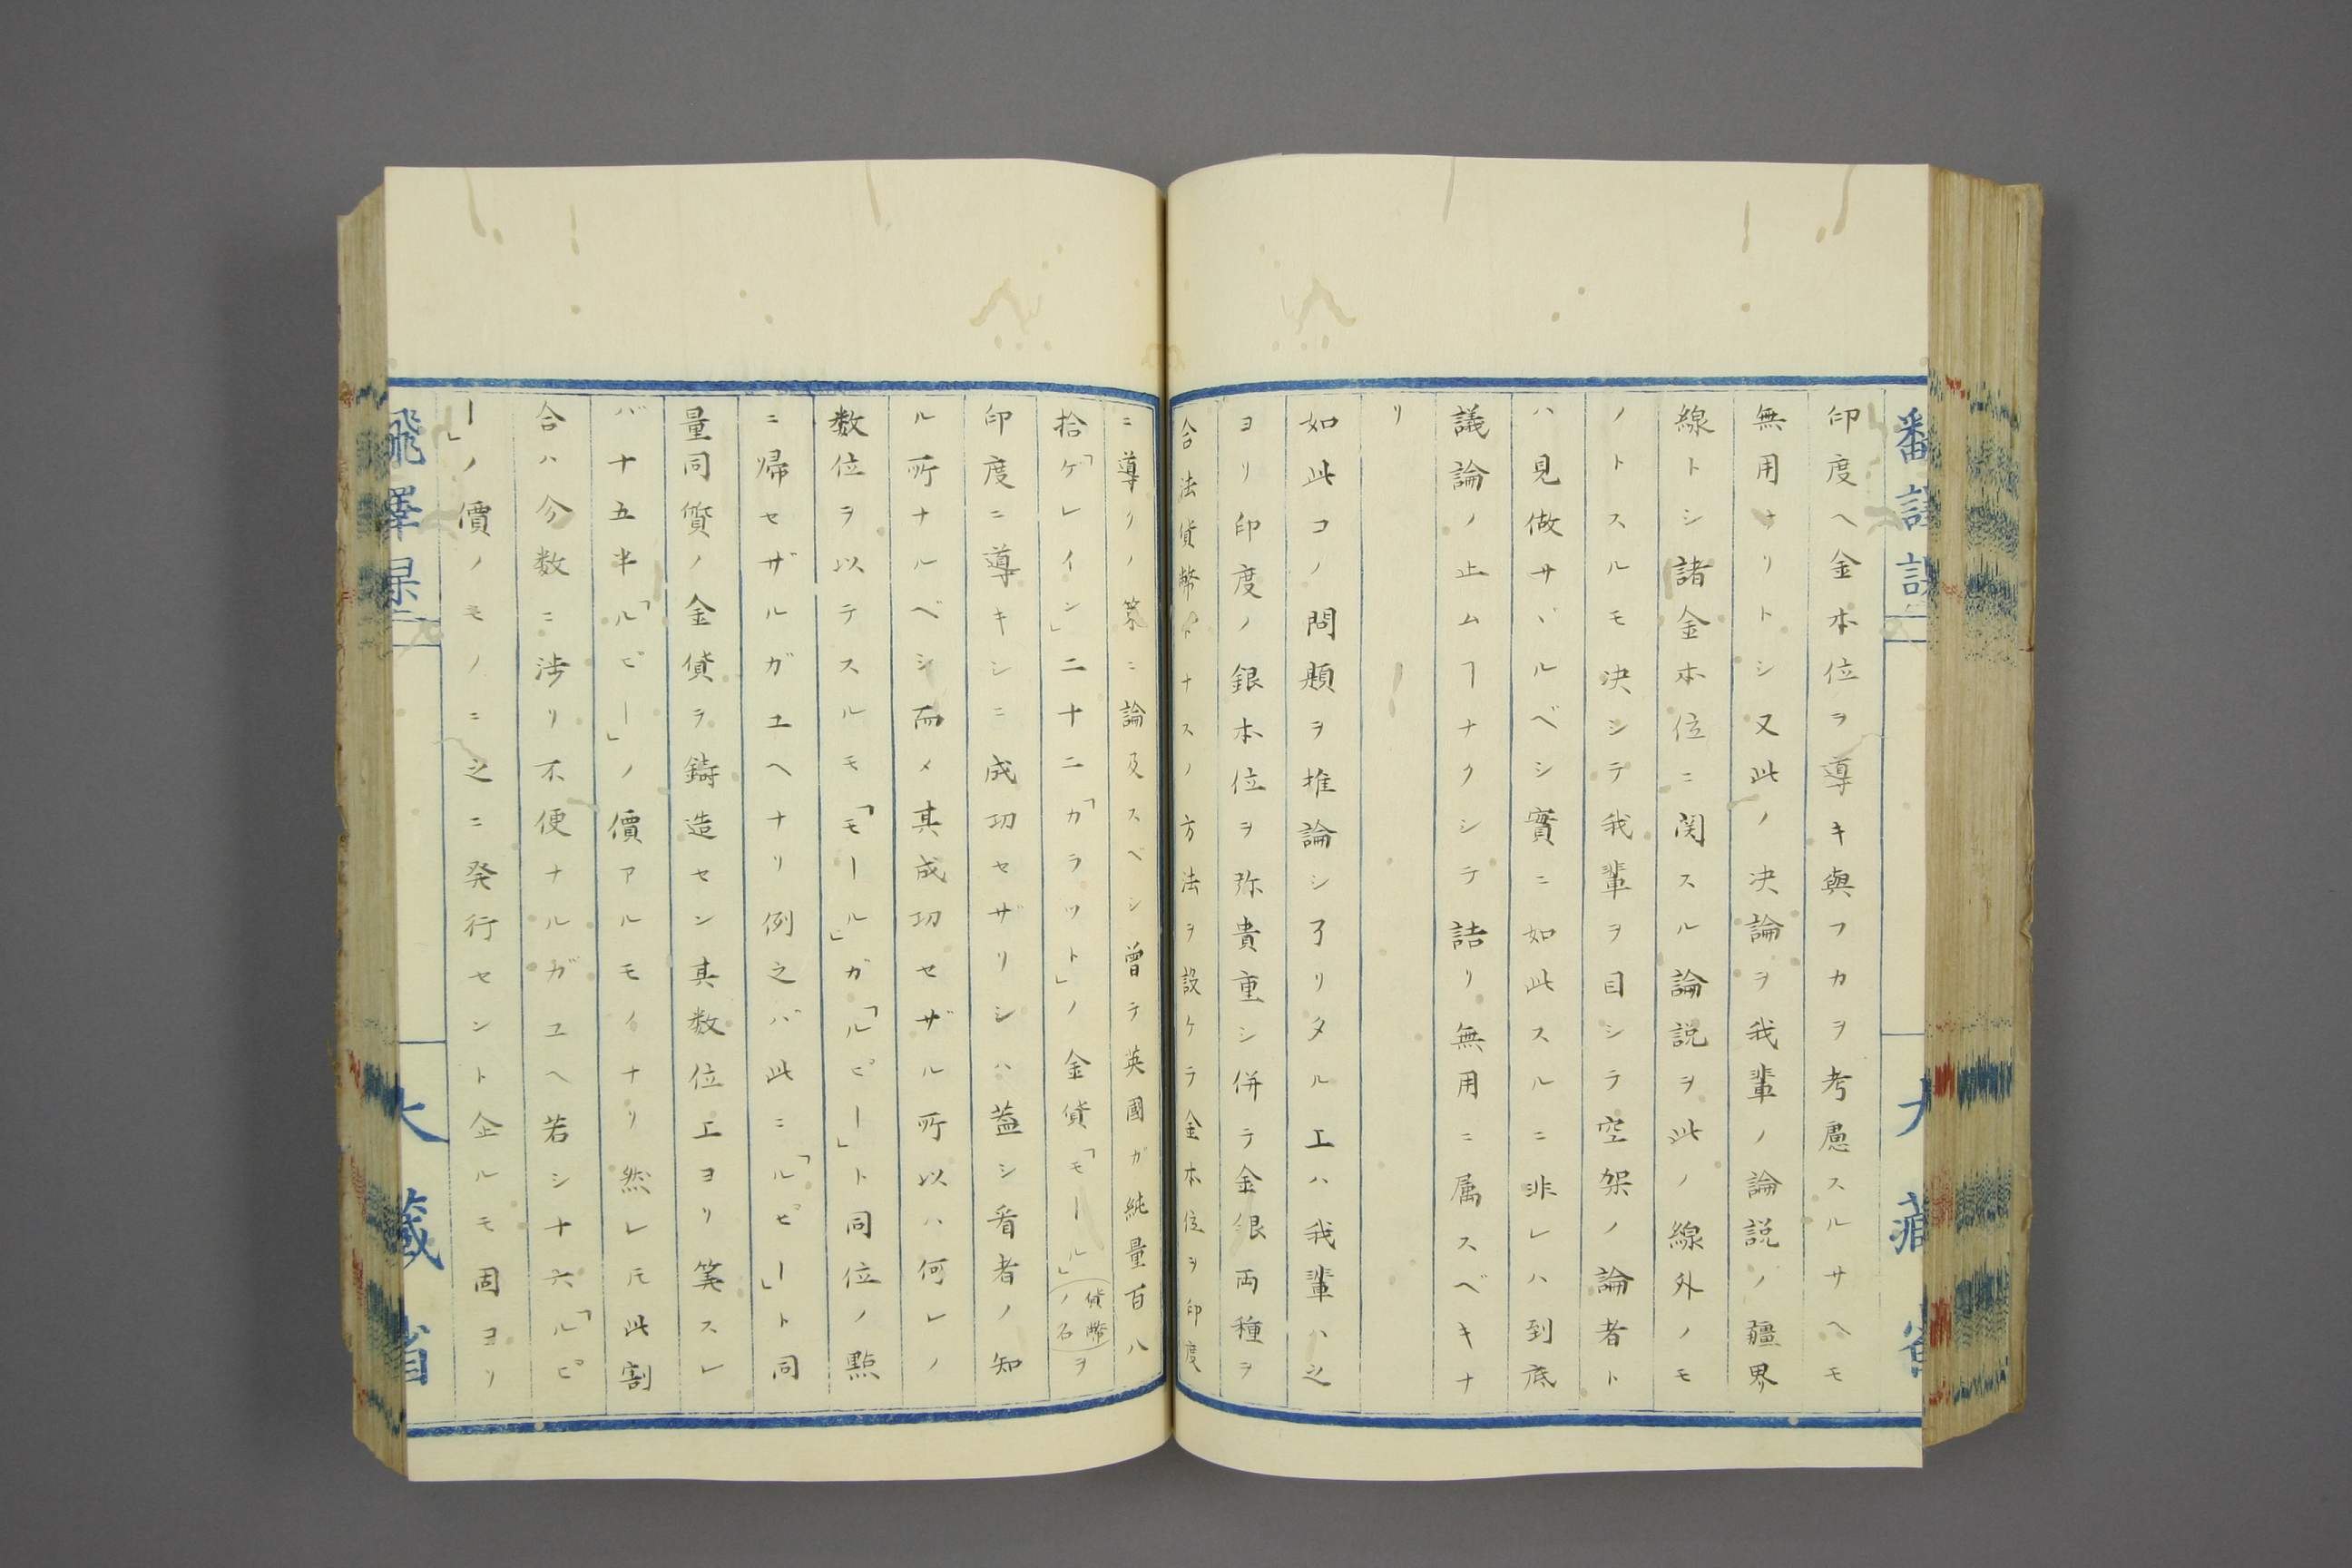 印度ヘ金本位ヲ導キ與フカヲ考慮スルサヘモ
無用ナリトシ又此ノ决論ヲ我輩ノ論説ノ疆界
線トシ諸金本位ニ関スル論説ヲ此ノ線外ノモ
ノトスルモ决シテ我輩ヲ目シテ空架ノ論者ト
ハ見做サヽルベシ實ニ如此スルニ非レハ到底
議論ノ止ムヿナクシテ詰リ無用ニ属スベキナ
リ
如此コノ問題ヲ推論シ了リタル上ハ我輩ハ之
ヨリ印度ノ銀本位ヲ弥貴重シ併テ金銀両種ヲ
合法貨幣トナスノ方法ヲ設ケテ金本位ヲ印度
ニ導クノ策ニ論及スベシ曾テ英國ガ純量百八
拾「ゲレイン」二十二「カラット」ノ金貨「モール」(貨幣ノ名)ヲ
印度ニ導キシニ成功セザリシハ蓋シ看者ノ知
ル所ナルベシ而メ其成功セザル所以ハ何レノ
数位ヲ以テスルモ「モール」ガ「ルピー」ト同位ノ點
ニ帰セザルガユヘナリ例之バ此ニ「ルピー」ト同
量同質ノ金貨ヲ鋳造セン其数位上ヨリ筭スレ
バ十五半「ルピー」ノ價アルモノナリ然レ𪜈此割
合ハ分数ニ渉リ不便ナルガユヘ若シ十六「ルピ
ー」ノ價ノモノニ之ニ発行セント企ルモ固ヨリ
大藏省
大藏省